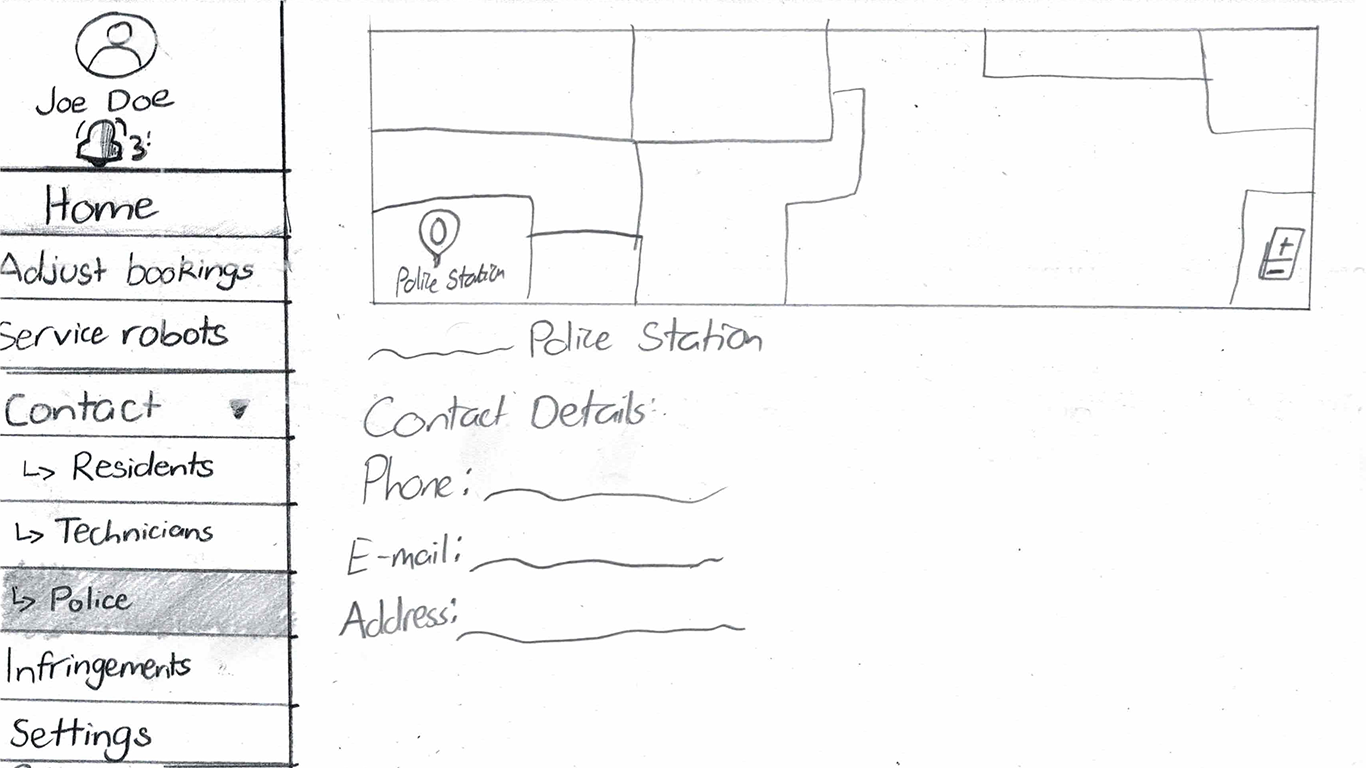 Joe Doe
3
Home
Adjust bookings
Service robots
Contact
Residents
Technicians
Police
Infringements
Settings
Police Station
+
-
Police Station
Contact Details:
Phone:
E-mail:
Address: